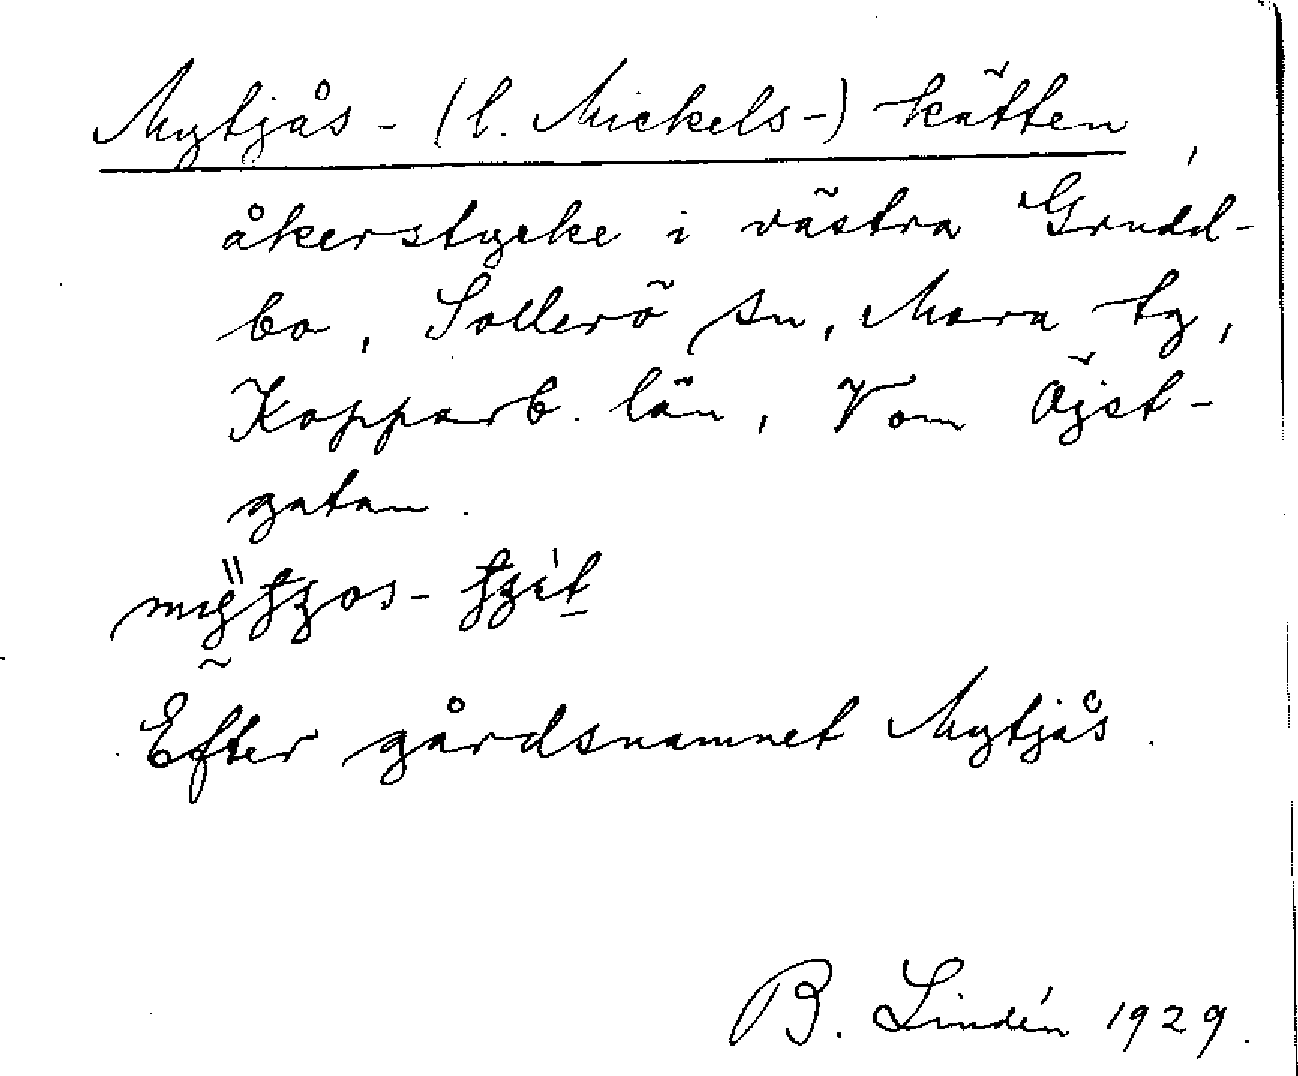 Mytjås- (l. Mickels-) kätten,
åkerstycke i västra Grudd-
bo, Sollerö sn, Mora tg,
Kopparb. län, V om Öjst-
gatan.
Efter gårdsnamnet Mytjås.
B. Lindén 1929.